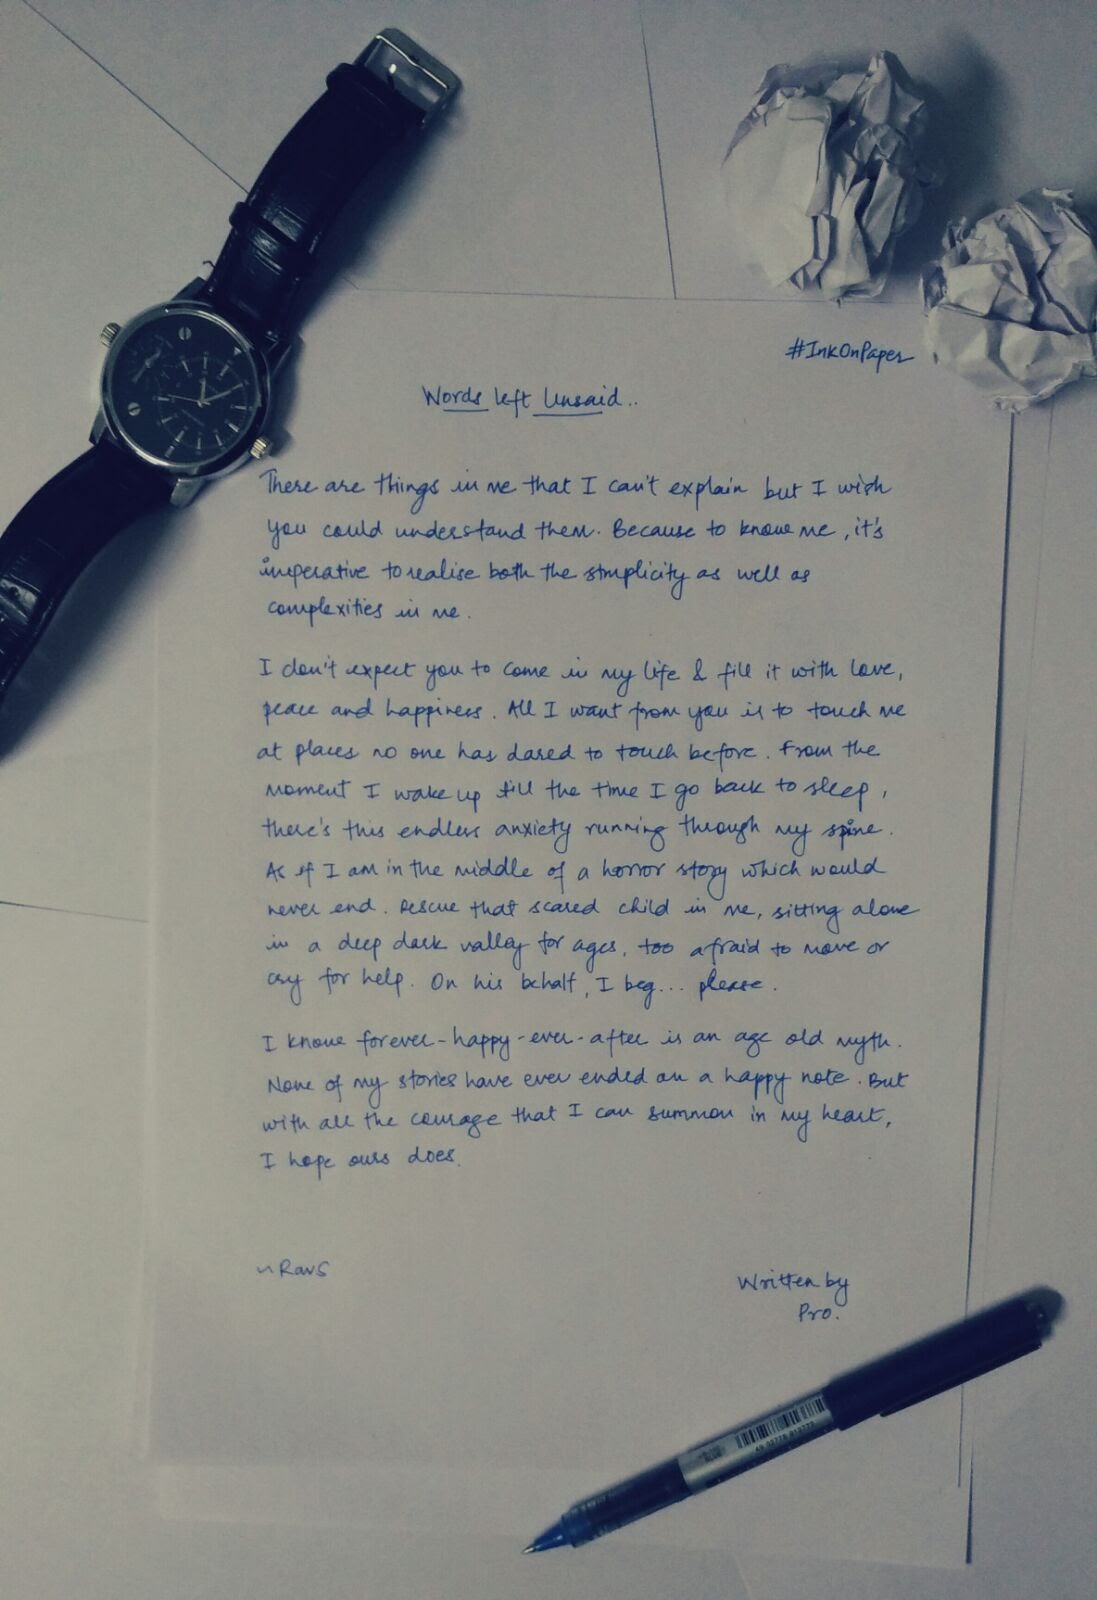 #InkOnPaper
Words left Unsaid..
There are things in me that I can't explain but I wish
you could understand them. Because to know me, it's
imperative to realise both the simplicity as well as
complexities in me.
I don't expect you to come in my life & fill it with love,
peace and happiness. All I want from you is to touch me
at places no one has dared to touch before. From the
moment I wake up till the time I go back to sleep,
there's this endless anxiety running through my spine.
As if I am in the middle of a horror story which would
never end. Rescue that scared child in me, sitting alone
in a deep dark valley for ages, too afraid to move or
cry for help. On his behalf, I beg... please.
I know forever-happy-ever-after is an age old myth.
None of my stories have ever ended on a happy note. But
with all the courage that I can summon in my heart,
I hope ours does.
~ Ravs
Written by
Pro.